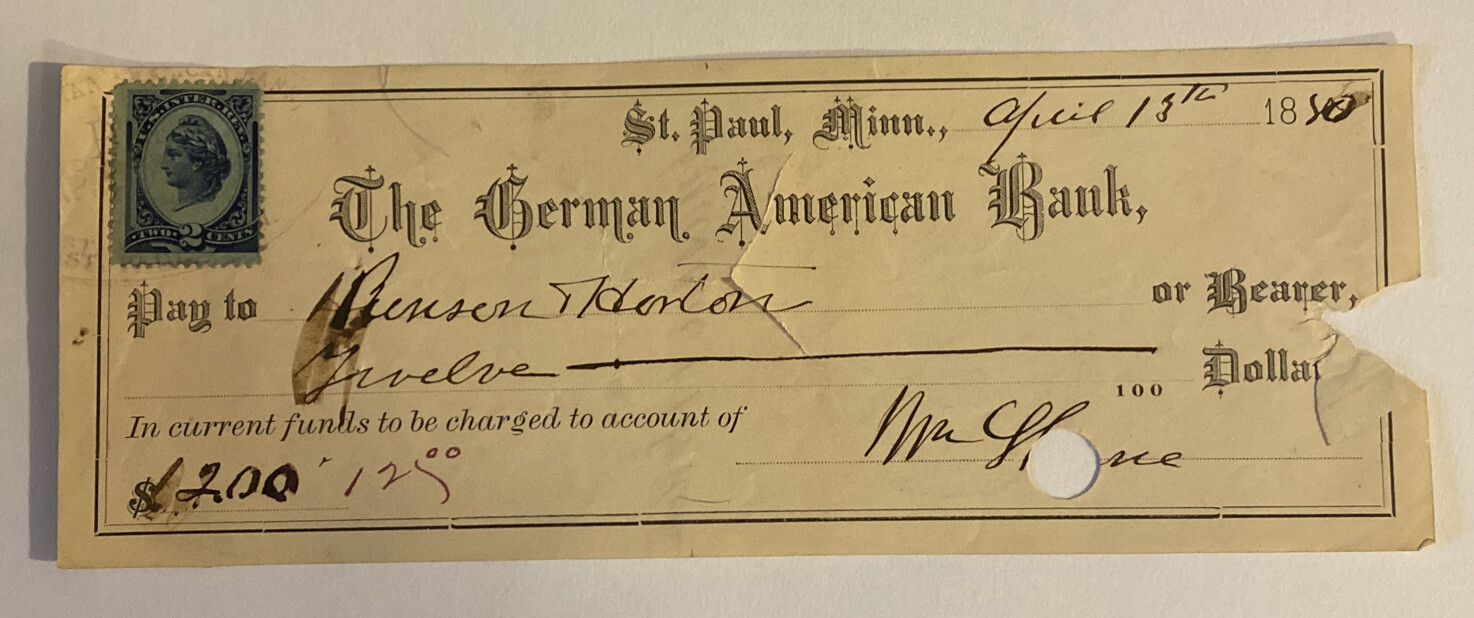 U.S. INTER. REV.
TWO 2 CENTS
St. Paul, Minn., April 13th 1880
The German American Bank,
Pay to Munson & Horton or Bearer,
Twelve 100 Dolla
In current funds to be charged to account of
Wm
$12.00 12.00